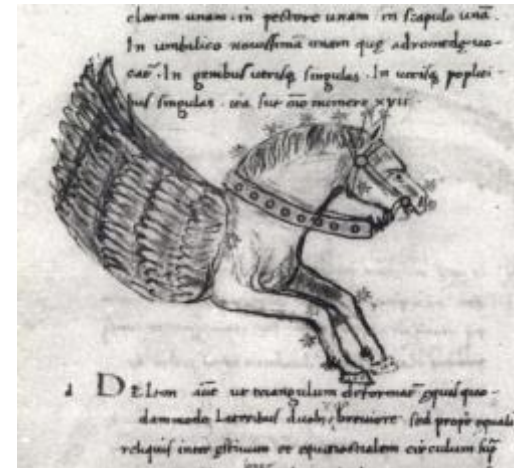 claram unam · in pectore unam · in scapulo unā ·
In umbilico nouissimā unam que adromede uo-
In genibus utrisq; singulas · In utrisq; poplici-
bus singulas · ita numero xvii ·
DEltron aūt ut triangulum equis quo-
dammodo Lateribus duobꝫ breuiore sed prope equali
reliquis inter et circulum